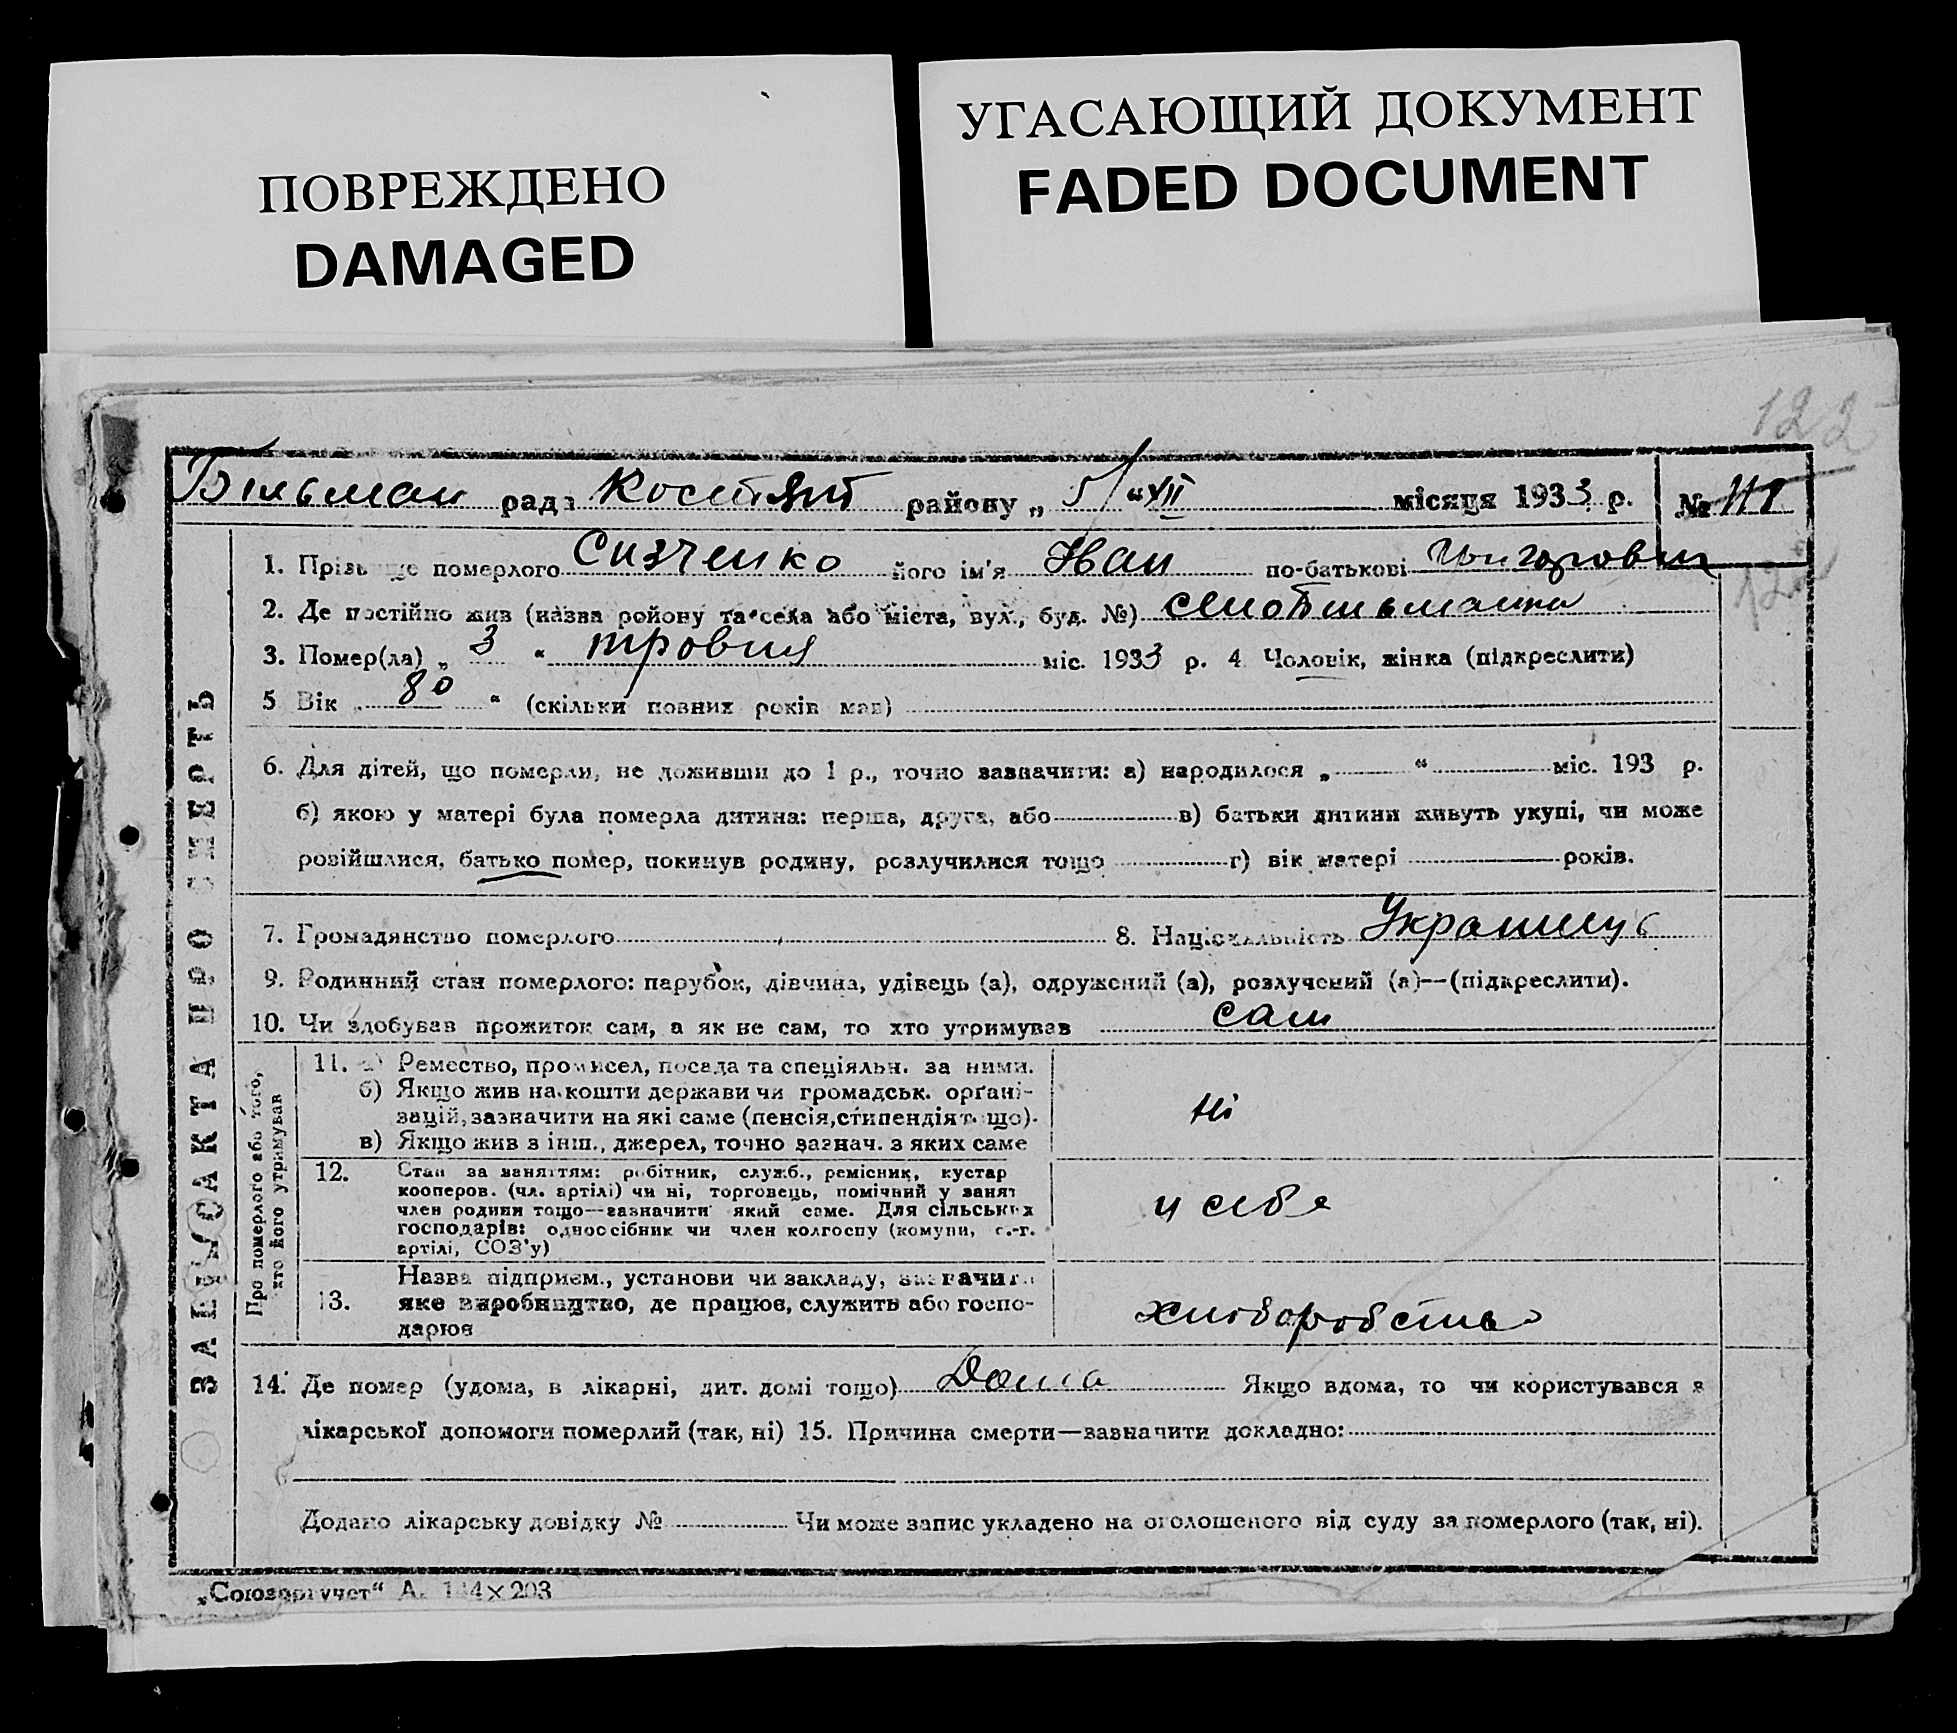 ПОВРЕЖДЕНО
DAMAGED
УГАСАЮЩИЙ ДОКУМЕНТ
FADED DOCUMENT
122
Більман рада Костянт району „ 5 “ XII місяця 1933 р. №
ЗАГС АКТ А ПРО СМЕРТЬ
1. Прізвище померлого його ім'я Іван по-батькові Григорович
2. Де постійно жив (назва району та села або міста, вул., буд. №)
3. Помер(ла) „ 3 “ тровня міс. 1933 р. 4 Чоловік, жінка (підкреслити)
5 Вік „ 80 “ (скільки повних років мав)
6. Для дітей, що померли, не доживши до 1 р., точно зазначити: а) народилося „ “ міс. 193 р.
б) якою у матері була померла дитина: перша, друга, або в) батьки дитини живуть укупі, чи може
розійшлися, батько помер, покинув родину, розлучилися тощо г) вік матері років.
7. Громадянство померлого 8. Національність Украинец
9. Родинний стан померлого: парубок, дівчина, удівець (а), одружений (а), розлучений (а)—(підкреслити).
10. Чи здобував прожиток сам, а як не сам, то хто утримував сам
Про померлого або того, хто його утримував
11. а) Ремество, промисел, посада та спеціяльн. за ними.
б) Якщо жив на кошти держави чи громадськ. орґані-
зацій, зазначити на які саме (пенсія, стипендія тощо).
в) Якщо жив з інш., джерел, точно зазнач. з яких саме
Ні
12. Стан за заняттям: робітник, служб., ремісник, кустар
кооперов. (чл. артілі) чи ні, торговець, помічний у занят
член родини тощо—зазначити який саме. Для сільських
господарів: одноосібник чи член колгоспу (комуни, с.-г.
артілі, СОЗ'у)
у себе
13. Назва підприєм., установи чи закладу, зазначити
яке виробництво, де працює, служить або госпо-
дарює
хлоборобство
14. Де помер (удома, в лікарні, дит. домі тощо) Дома Якщо вдома, то чи користувався з
лікарської допомоги померлий (так, ні) 15. Причина смерти—зазначити докладно:
Додано лікарську довідку № Чи може запис укладено на оголошеного від суду за померлого (так, ні).
„Союзоргучет“ А. 144×203